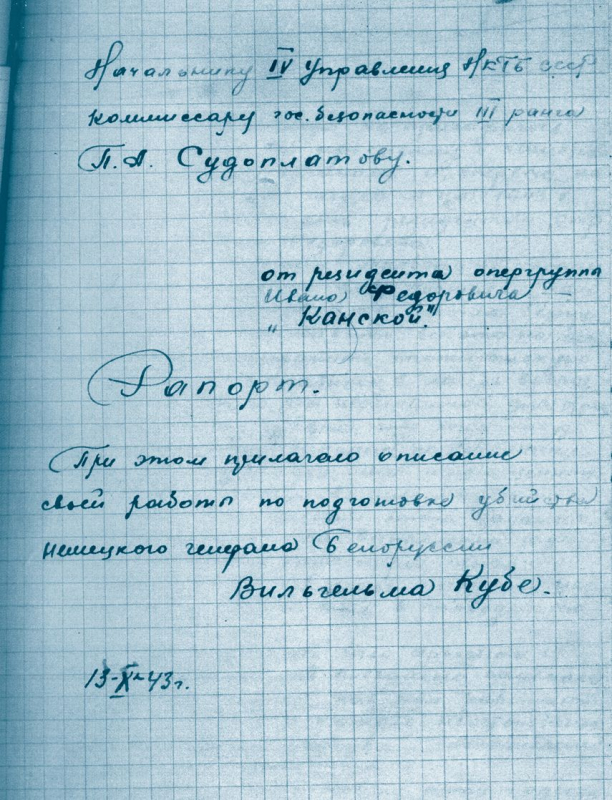 Начальнику IV Управления НКГБ СССР
Комиссару гос. безопасности III ранга
П. А. Судоплатову.
от резидента опергруппы
Ивана Федоровича –
„Канской".
Рапорт.
При этом прилагаю описание
своей работы по подготовке убийства
немецкого генерала Белоруссии
Вильгельма Кубе.
13-X-43 г.